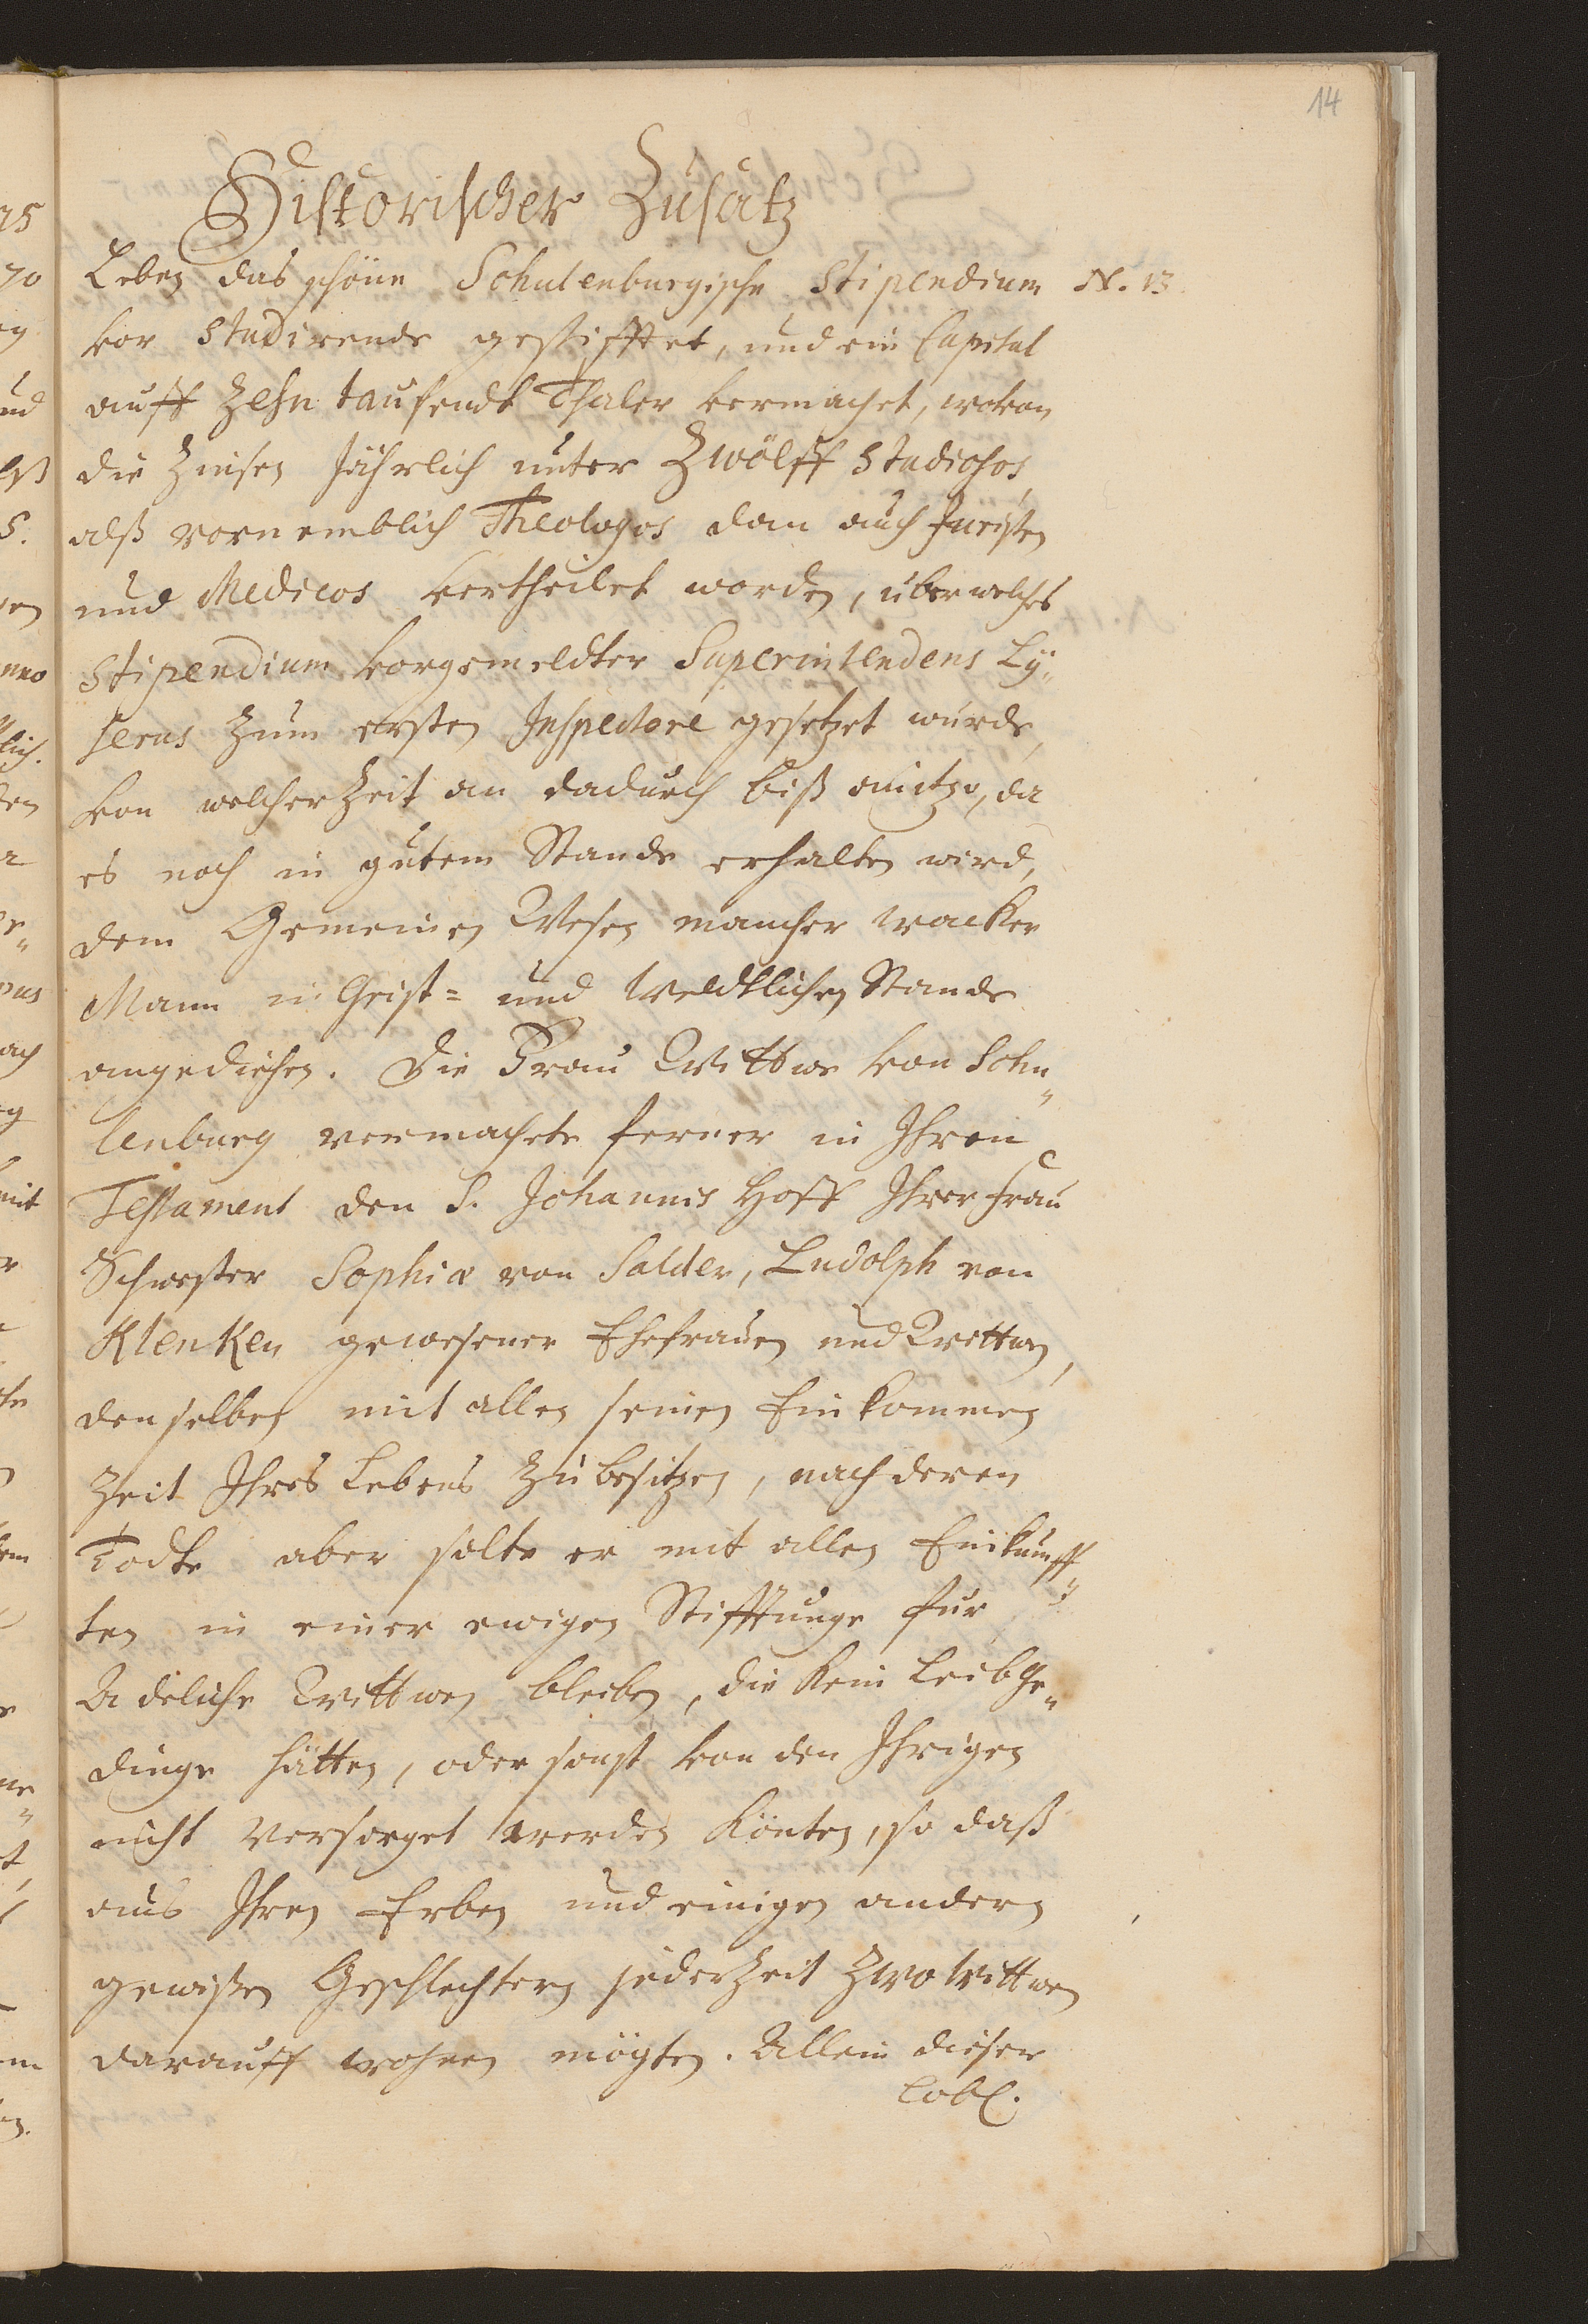 14
Historischer Zusatz
Leben das schöne Schulenburgische Stipendium N. 13
vor Studirende gestifftet, und ein Capital
auff Zehn tausendt Thaler vermachet, wovon
die Zinsen Jährlich unter Zwölff Studiosos,
alß vornemblich Theologos dan auch Juristen
und Medicos vertheilet worden, über welches
Stipendium vorgemeldter Superintendens Ly„
serus Zum ersten Inspectore gesetzet wurde,
von welcher Zeit an dadurch biß anitzo, da
es noch in gutem Stande erhalten wird,
dem Gemeinen Wesen mancher wacker
Mann in Geist= und Weldtlichen Stande
angediehen. Die Frau Wittwe von Schu„
lenburg vermachte ferner in Ihren
Testament den S. Johannis Hoff Ihrer Frau
Schwester Sophiæ von Salder, Ludolph von
Klenken gewesener Ehefrauen und Wittwen,
denselben mit allen seinen Einkommen
Zeit Ihres Lebens Zu besitzen, nach deren
Todte aber solte er mit allen Einkunff„
ten in einer ewigen Stifftunge für
Adeliche Wittwen bleiben, die kein Leibge„
dinge hätten, oder sonst von den Ihrigen
nicht versorget werden könten, so daß
aus Ihren Erben und einigen andern
gewißen Geschlechtern jederzeit Zwo Wittwen
darauff wohnen mögten. Allein dieser
Löbl.